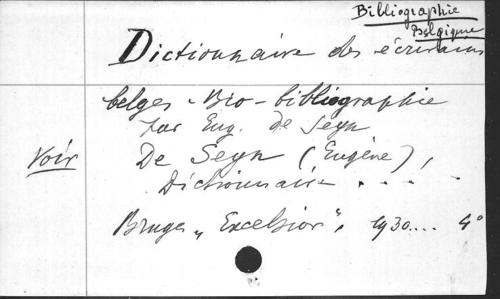 Bibliographie
Belgique
Dictionnaire des écrivains
belges. Bio-bibliographie
par Eug. de Seyn
Voir De Seyn (Eugène),
Dictionnaire . . . -
Bruges „Excelsior", 1930.... 4°